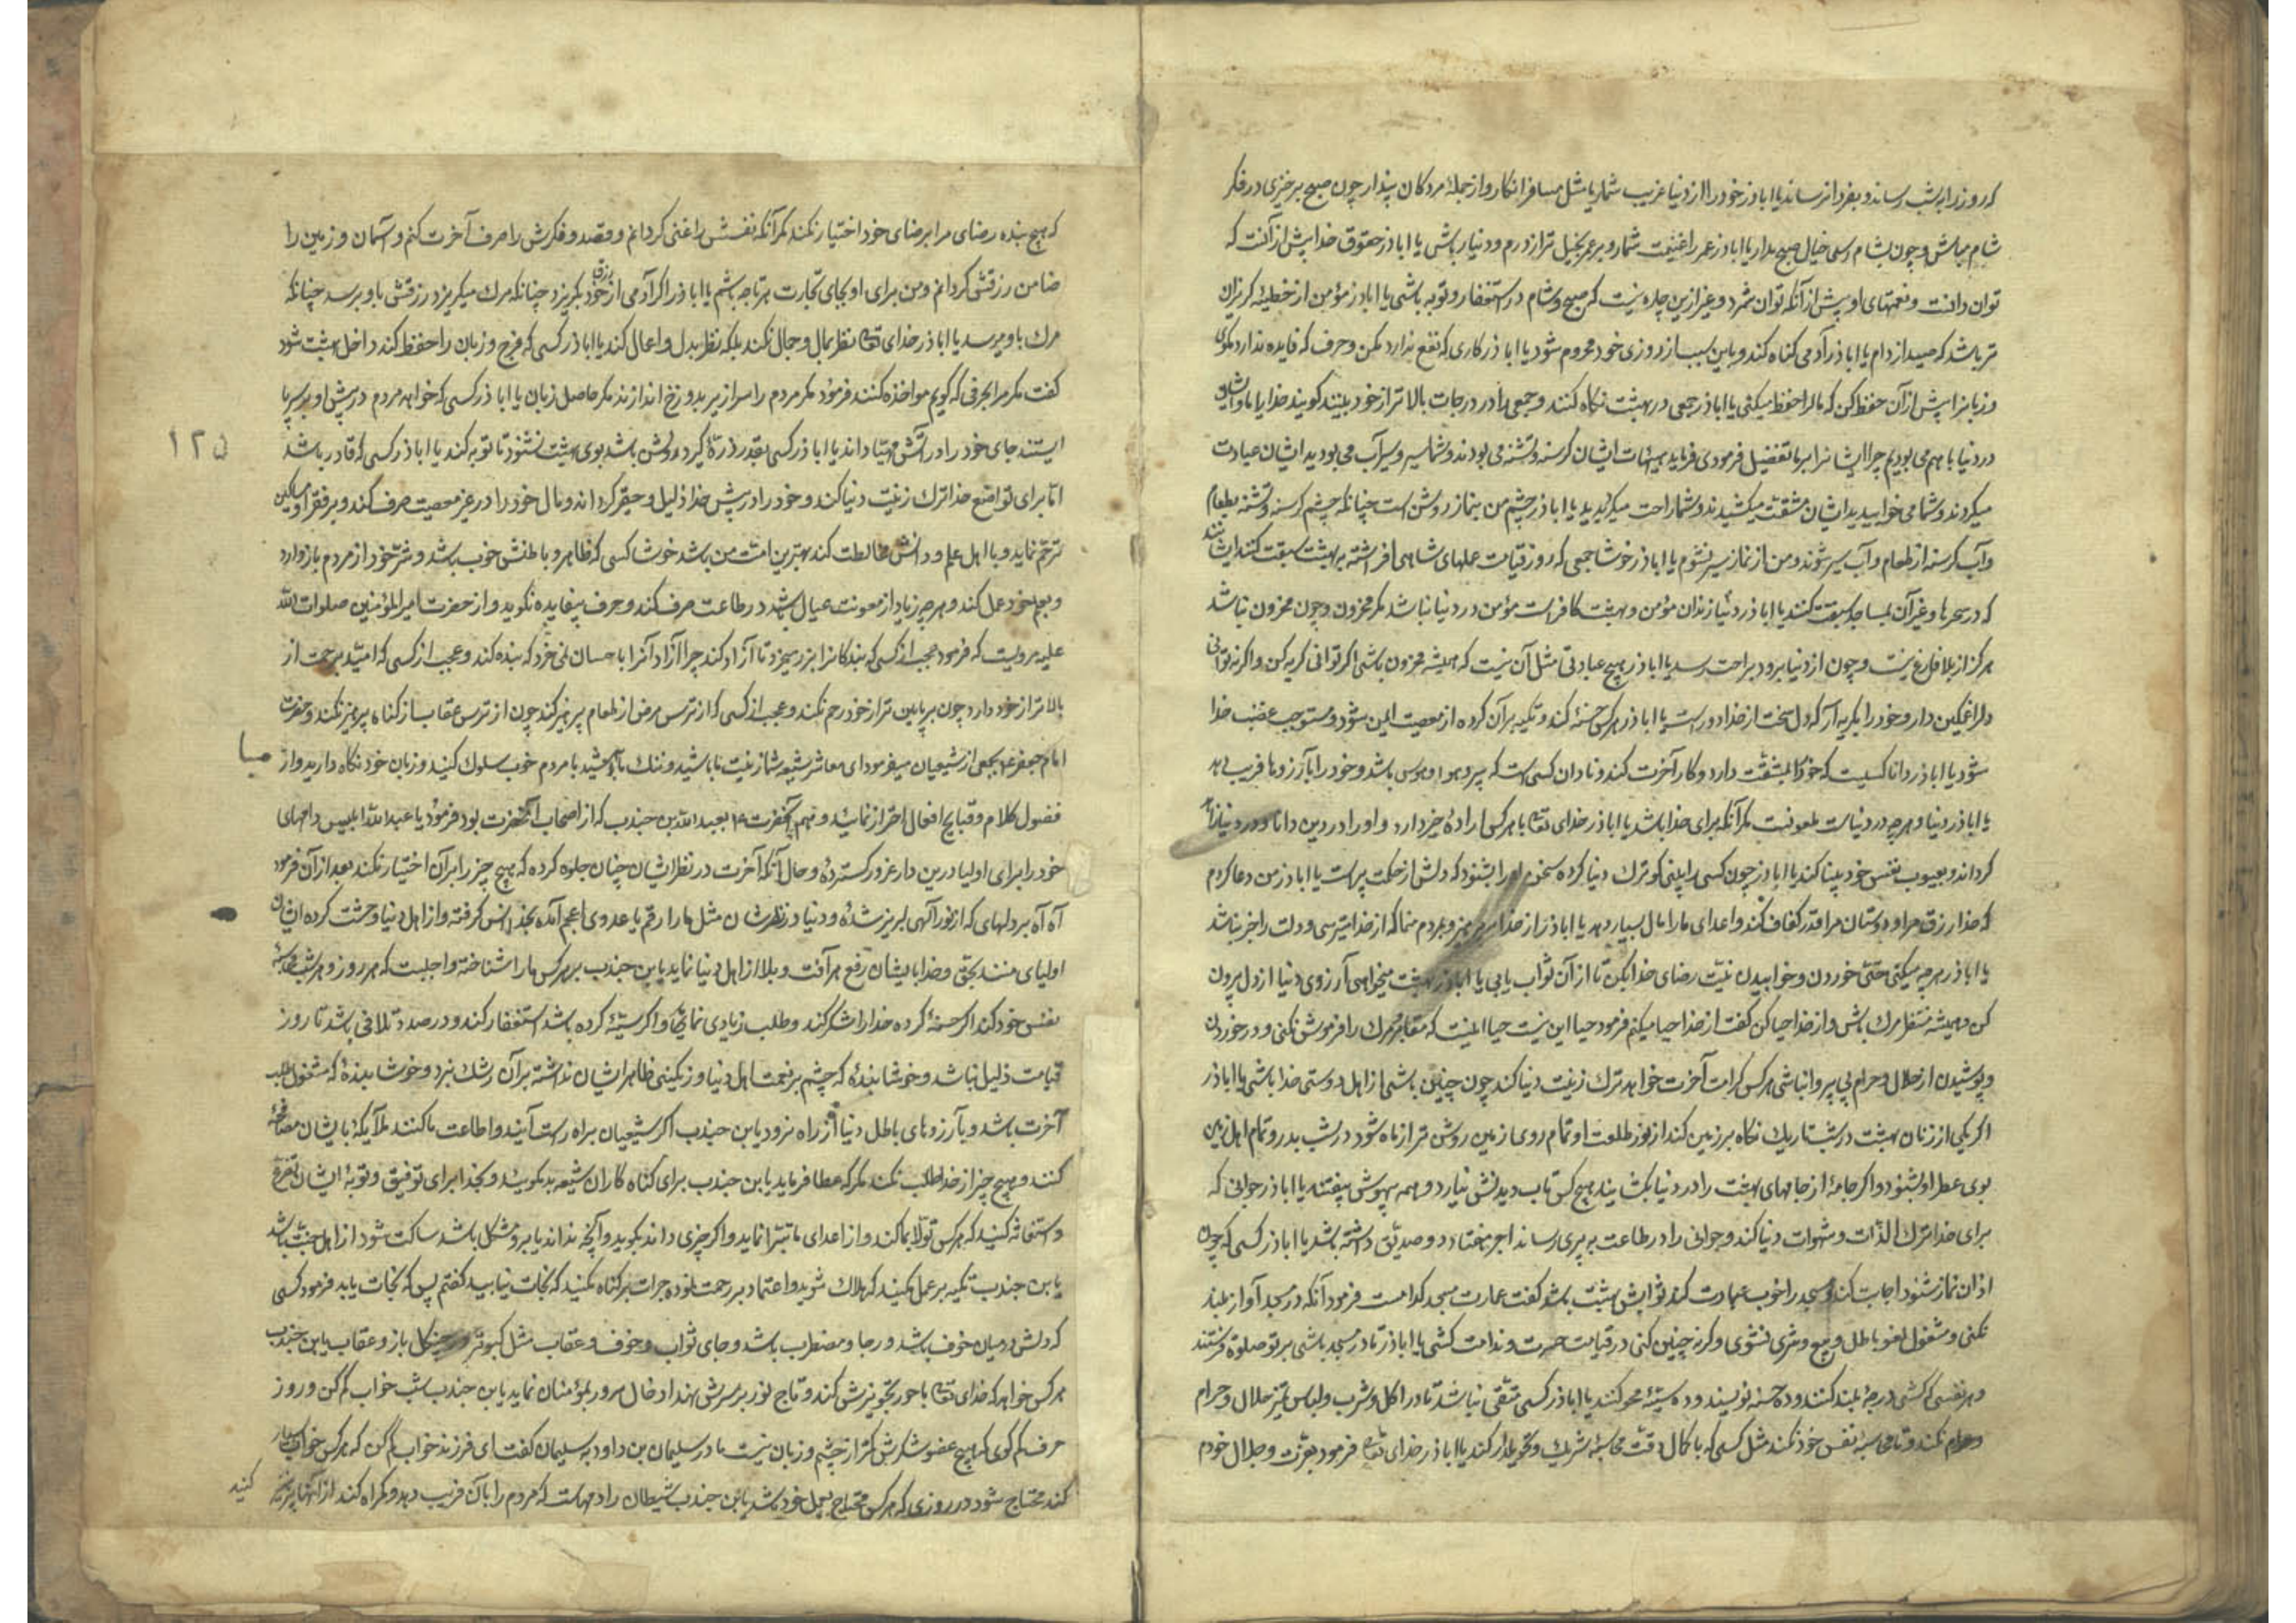 که روز را بشب رساند و بفردا نرساند یا اباذر خود را از دنیا غریب شمار یا مثل مسافر انکار و از جمله مردکان پندار چون صبح برخیزی در فکر
شام مباش و چون بشام رسی خیال صبح مدار یا اباذر عمر را غنیمت شمار و بر عمر بخیل تر از درم و دنیار باش یا اباذر حقوق خدا پیش از آنست که
توان دانست و نعمتهای او پیش از آنکه توان شمرد و غیر ازین چاره نیست که صبح و شام در استغفار و توبه باشی یا اباذر مؤمن از خطیئه کریزان
تر باشد که صید از دام یا اباذر آدمی کناه کند و باین سبب از روزی خود محروم شود یا اباذر کاری که نفع ندارد مکن و حرف که فایده ندارد مکوی
و زبانرا پیش از آن حفظ کن که مال را حفظ میکنی یا اباذر جمعی در بهشت نکاه کنند و جمعی را در درجات بالاتر از خود بینند کویند خدایا ما و ایشان
در دنیا با هم می بودیم چرا ایشانرا بر ما تفضیل فرمودی فرماید هیهات ایشان کرسنه و تشنه می بودند و شما سیر و سیرآب می بودید ایشان عبادت
میکردند و شما می خوابیدید ایشان مشقت میکشیدند و شما راحت میکزیدید یا اباذر چشم من بنماز روشن است چنانکه چشم کرسنه و تشنه بطعام
و آب کرسنه از طعام و آب سیر شوند و من از نماز سیر نشوم یا اباذر خوشا جمعی که روز قیامت علمهای شاهی افراشته به بهشت سبقت کنند ایشانند
که در سحرها و غیر آن بمساجد سبقت کنند یا اباذر دنیا زندان مؤمن و بهشت کافر است مؤمن در دنیا نباشد مکر محزون و چون محزون نباشد
هرکز از بلا فارغ نیست و چون از دنیا برود براحت رسد یا اباذر هیچ عبادتی مثل آن نیست که همیشه محزون باشی اکر توانی کریه کن و اکر نتوانی
دلرا غمکین دار و خود را بکریه آر که دل سخت از خدا دور است یا اباذر هرکس حسنه کند و تکیه بر آن کرده از معصیت ایمن شود و مستوجب غضب خدا
شود یا اباذر دانا کسیست که خود را بمشقت دارد و کار آخرت کند و نادان کسی است که پیرو هوا و هوس باشد و خود را بآرزوها فریب دهد
یا اباذر دنیا و هرچه در دنیاست ملعونست مکر آنکه برای خدا باشد یا اباذر خدای تعالی با هرکس اراده خیر دارد او را در دین دانا و در دنیا زاهد
کرداند و بعیوب نفس خود بینا کند یا اباذر چون کسی را بینی کو ترک دنیا کرده سخن او را بشنو که دلش از حکمت پر است یا اباذر من دعا کردم
که خدا رزق مرا و دوستان مرا قدر کفاف کند و اعدای ما را مال بسیار دهد یا اباذر از خدا بپرهیز و بمردم منما که از خدا میترسی و دلت را خبر نباشد
یا اباذر هرچه میکنی حتی خوردن و خوابیدن نیت رضای خدا بکن تا از آن ثواب یابی یا اباذر بهشت میخواهی آرزوی دنیا از دل بیرون
کن و همیشه منتظر مرک باش و از خدا حیا کن کفت از خدا حیا میکنم فرمود حیا این نیست حیا اینست که مقابر و مرک را فراموش نکنی و در خوردن
و پوشیدن از حلال و حرام بی پروا نباشی هرکس کرامت آخرت خواهد ترک زینت دنیا کند چون چنین باشی از اهل دوستی خدا باشی یا اباذر
اکر یکی از زنان بهشت در شب تاریک نکاه بر زمین کند از نور طلعت او تمام روی زمین روشن تر از ماه شود در شب بدر و تمام اهل زمین
بوی عطر او بشنود و اکر جامه از جامهای بهشت را در دنیا بکشایند هیچ کس تاب دیدنش نیارد و همه بیهوش بیفتند یا اباذر جوانی که
برای خدا ترک لذات و شهوات دنیا کند و جوانی را در طاعت به پیری رساند اجر هفتاد دو صدیق داشته باشد یا اباذر کسی که چون
اذان نماز شنود اجابت کند و مسجد را خوب عمارت کند ثوابش بهشت باشد کفت عمارت مسجد کدامست فرمود آنکه در مسجد آواز بلند
نکنی و مشغول لغو باطل و بیع و شری نشوی و کر نه چنین کنی در قیامت حسرت و ندامت کشی یا اباذر تا در مسجد باشی بر تو صلوة فرستند
و هر نفسی که کشی درجه بلند کنند و ده حسنه نویسند و ده سیئه محو کنند یا اباذر کسی متقی نباشد تا در اکل و شرب و لباس تمیز حلال و حرام
نکند و تا محاسبه نفس خود نکند مثل کسی که با کمال دقت محاسبه شریک و تحویلدار کند یا اباذر خدای تعالی فرمود بعزت و جلال خودم
که هیچ بنده رضای مرا بر رضای خود اختیار نکند مکر آنکه نفسش را غنی کردانم و قصد و فکرش را صرف آخرت کنم و آسمان و زمین را
ضامن رزقش کردانم و من برای او بجای تجارت هر تاجر باشم یا اباذر اکر آدمی از رزق خود بکریزد چنانکه مرک میکریزد رزقش باو برسد چنانکه
مرک باو میرسد یا اباذر خدای تعالی نظر بمال و جمال نکند بلکه نظر بدل و اعمال کند یا اباذر کسی که فرج و زبان را حفظ کند داخل بهشت شود
کفت مکر ما را بحرفی که کویم مواخذه کنند فرمود مکر مردم را سرازیر بدوزخ اندازند مکر حاصل زبان یا اباذر کسی که خواهد مردم در پیش او بر سر پا
ایستند جای خود را در آتش مهیا داند یا اباذر کسی بقدر ذره کبر در دلش باشد بوی بهشت نشنود تا توبه کند یا اباذر کسی که قادر باشد
۱۲۵
اما برای تواضع خدا ترک زینت دنیا کند و خود را در پیش خدا ذلیل و حقیر کرداند و مال خود را در غیر معصیت صرف کند و بر فقرا و مساکین
ترحم نماید و با اهل علم و دانش مخالطت کند بهترین امت من باشد خوشا کسی که ظاهر و باطنش خوب باشد و شر خود از مردم باز دارد
و بعلم خود عمل کند و هرچه زیاد از معونت عیال باشد در طاعت صرف کند و حرف بیفایده نکوید و از حضرت امیرالمؤمنین صلوات الله
علیه مرویست که فرمود عجب از کسی که بندکانرا بزر میخرد تا آزاد کند چرا آزاد آنرا باحسان نمی خرد که بنده کند و عجب از کسی که امید برحمت از
بالاتر از خود دارد چون بر پایین تر از خود رحم نکند و عجب از کسی که از ترس مرض از طعام پرهیز کند چون از ترس عقاب از کناه پرهیز نکند و حضرت
امام جعفر بجمعی از شیعیان میفرمود ای معاشر شیعه شما زینت ما باشید و ننک ما مباشید با مردم خوب سلوک کنید و زبان خود نکاه دارید و از
فضول کلام و قبایح افعال احتراز نمائید و هم آنحضرت بعبدالله بن جندب که از اصحاب آنحضرت بود فرمود یا عبدالله ابلیس دامهای
خود را برای اولیا درین دار غرور کسترده و حال آنکه آخرت در نظر ایشان چنان جلوه کرده که هیچ چیز را بر آن اختیار نکند بعد از آن فرمود
آه آه بر دلهای که از نور آلهی لبریز شده و دنیا در نظرشان مثل مار ارقم یا عدوی اعجم آمده بخدا انس کرفته و از اهل دنیا وحشت کرده ایشان
اولیای منند بحق و خدا بایشان رفع هر آفت و بلا از اهل دنیا نماید یا بن جندب بر هرکس ما را شناخته واجبست که هر روز و هر شب محاسبه
نفس خود کند اکر حسنه کرده خدا را شکر کند و طلب زیادی نماید و اکر سیئه کرده باشد استغفار کند و در صدد تلافی باشد تا روز
قیامت ذلیل نباشد و خوشا بنده که چشم بر نعمت اهل دنیا و زنکینی ظاهر ایشان نداشته بر آن رشک نبرد و خوشا بنده که مشغول طلب
آخرت باشد و بآرزوهای باطل دنیا از راه نرود یا بن جندب اکر شیعیان براه راست آیند و اطاعت ما کنند ملائکه با ایشان مصافحه
کنند و هیچ چیز از خدا طلب نکنند مکر که عطا فرماید یا بن جندب برای کناه کاران شیعه بد مکویید و بخدا برای توفیق و توبه ایشان تضرع
و استغاثه کنید که هرکس تولا بما کند و از اعدای ما تبرا نماید و اکر چیزی داند بکوید و آنچه نداند یا برو مشکل باشد ساکت شود از اهل جنت باشد
یا بن جندب تکیه بر عمل مکنید که هلاک شوید و اعتماد بر رحمت نموده جرات بر کناه مکنید که نجات نیابید کفتم پس که نجات یابد فرمود کسی
که دلش در میان خوف باشد و رجا و مضطرب باشد و جای ثواب و خوف و عقاب مثل کبوتر در چنکال باز و عقاب یا بن جندب
هرکس خواهد که خدای تعالی با حور تجویزش کند و تاج نور بر سرش نهد ادخال سرور بمؤمنان نماید یا بن جندب شب خواب کم کن و روز
حرف کم کوی که هیچ عضو شکرش کمتر از چشم و زبان نیست مادر سلیمان بن داود به سلیمان کفت ای فرزند خواب کم کن که هرکس خواب بسیار
کند محتاج شود در روزی که هرکس محتاج بعمل خود باشد یا بن جندب شیطان را دامهاست که مردم را بآن فریب دهد و کمراه کند از آنها پرهیز
کنید